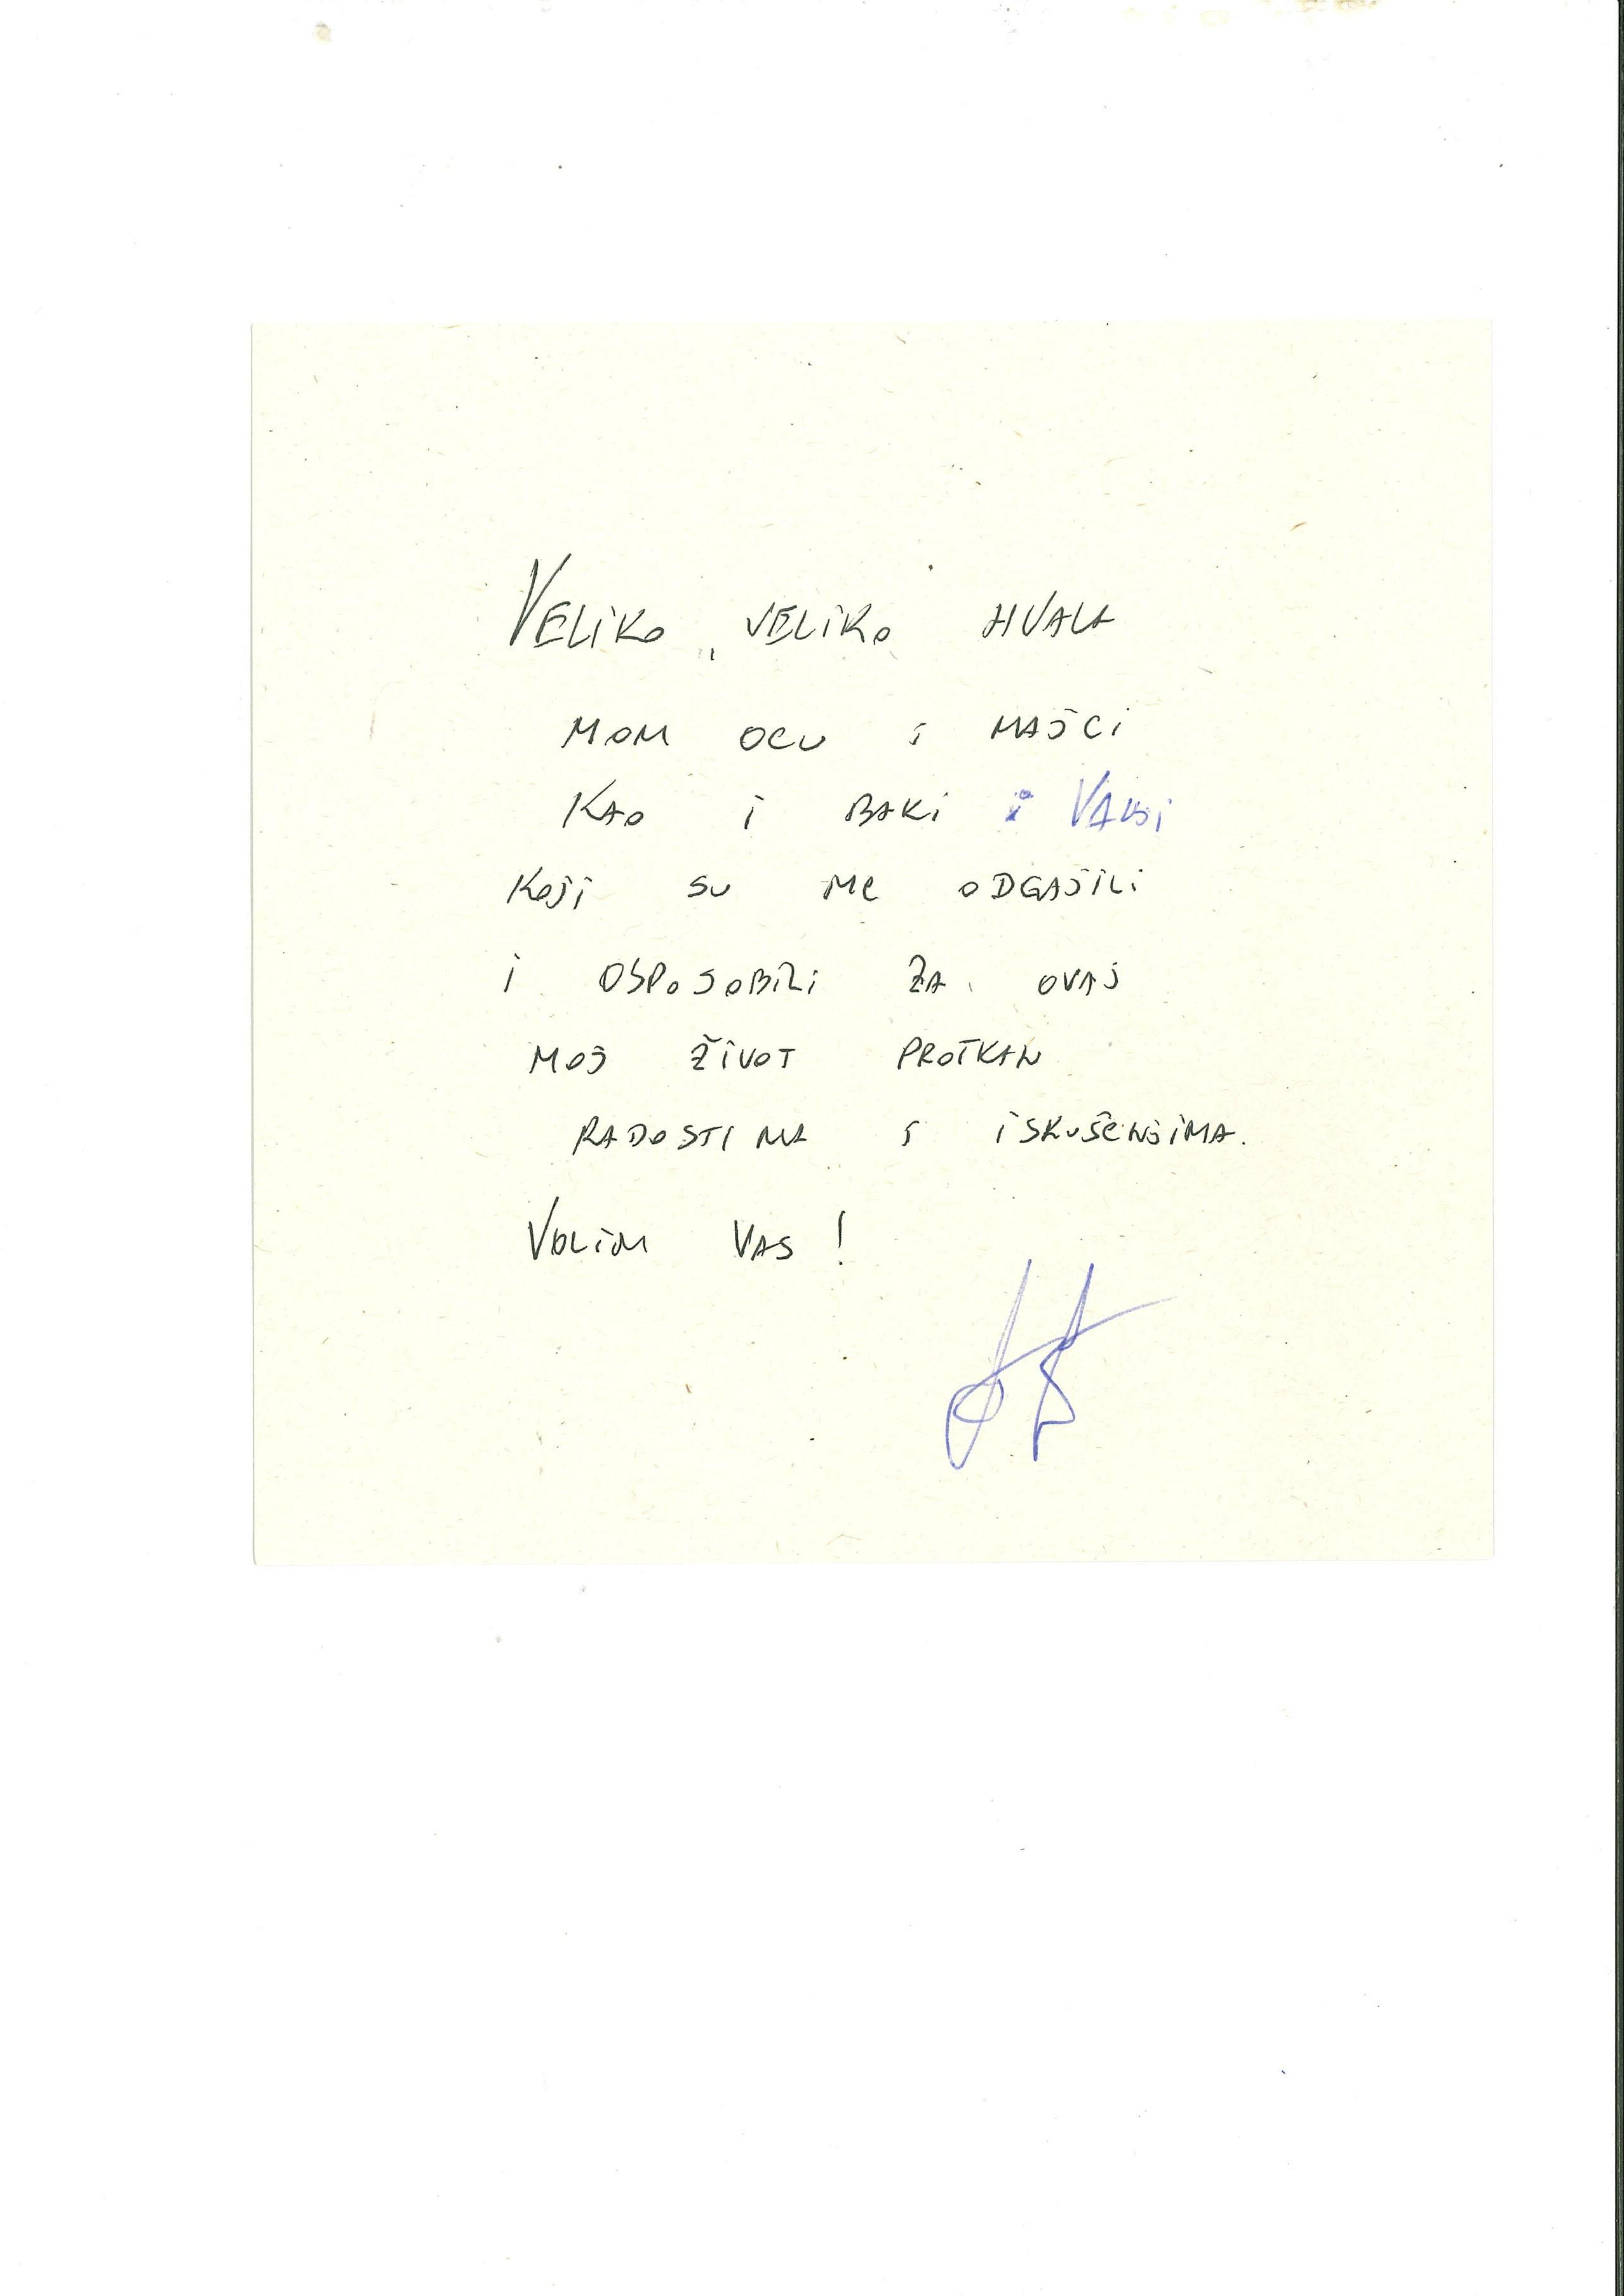 VELIKO, VELIKO HVALA
MOM OCU I MAJCI
KAO I BAKI I
KOJI SU ME ODGAJILI
I OSPOSOBILI ZA OVAJ
MOJ ŽIVOT PROTKAN
RADOSTIMA I ISKUŠENJIMA.
VOLIM VAS!